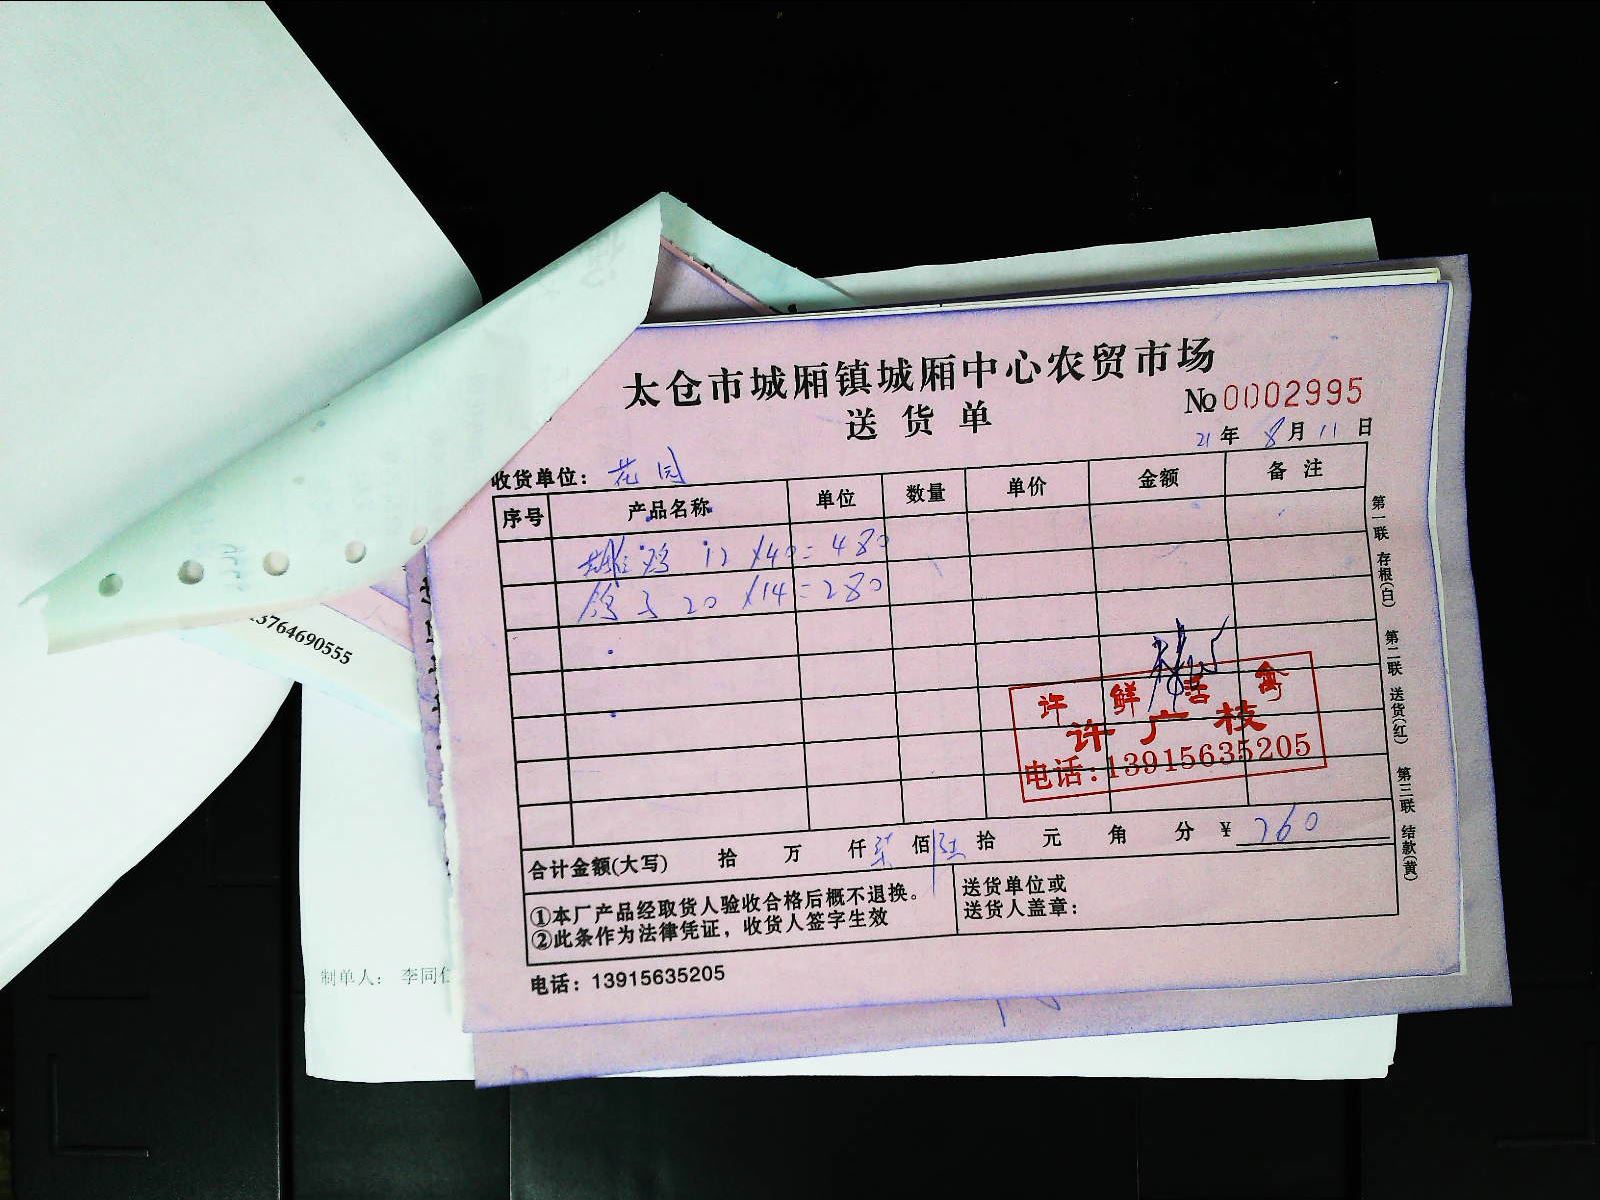 太仓市城厢镇城厢中心农贸市场
送货单
№0002995
21年 8月 11日
收货单位： 花园
序号 产品名称 单位 数量 单价 金额 备注
鸡 12 ×40=480
鸽子 20 ×14=280
许 鲜 活 禽
许广枝
电话:13915635205
合计金额(大写) 拾 万 仟 柒 佰 陆 拾 元 角 分 ¥ 760
①本厂产品经取货人验收合格后概不退换。
②此条作为法律凭证，收货人签字生效
送货单位或
送货人盖章：
电话：13915635205
第一联 存根(白) 第二联 送货(红) 第三联 结款(黄)
13764690555
制单人： 李同仁